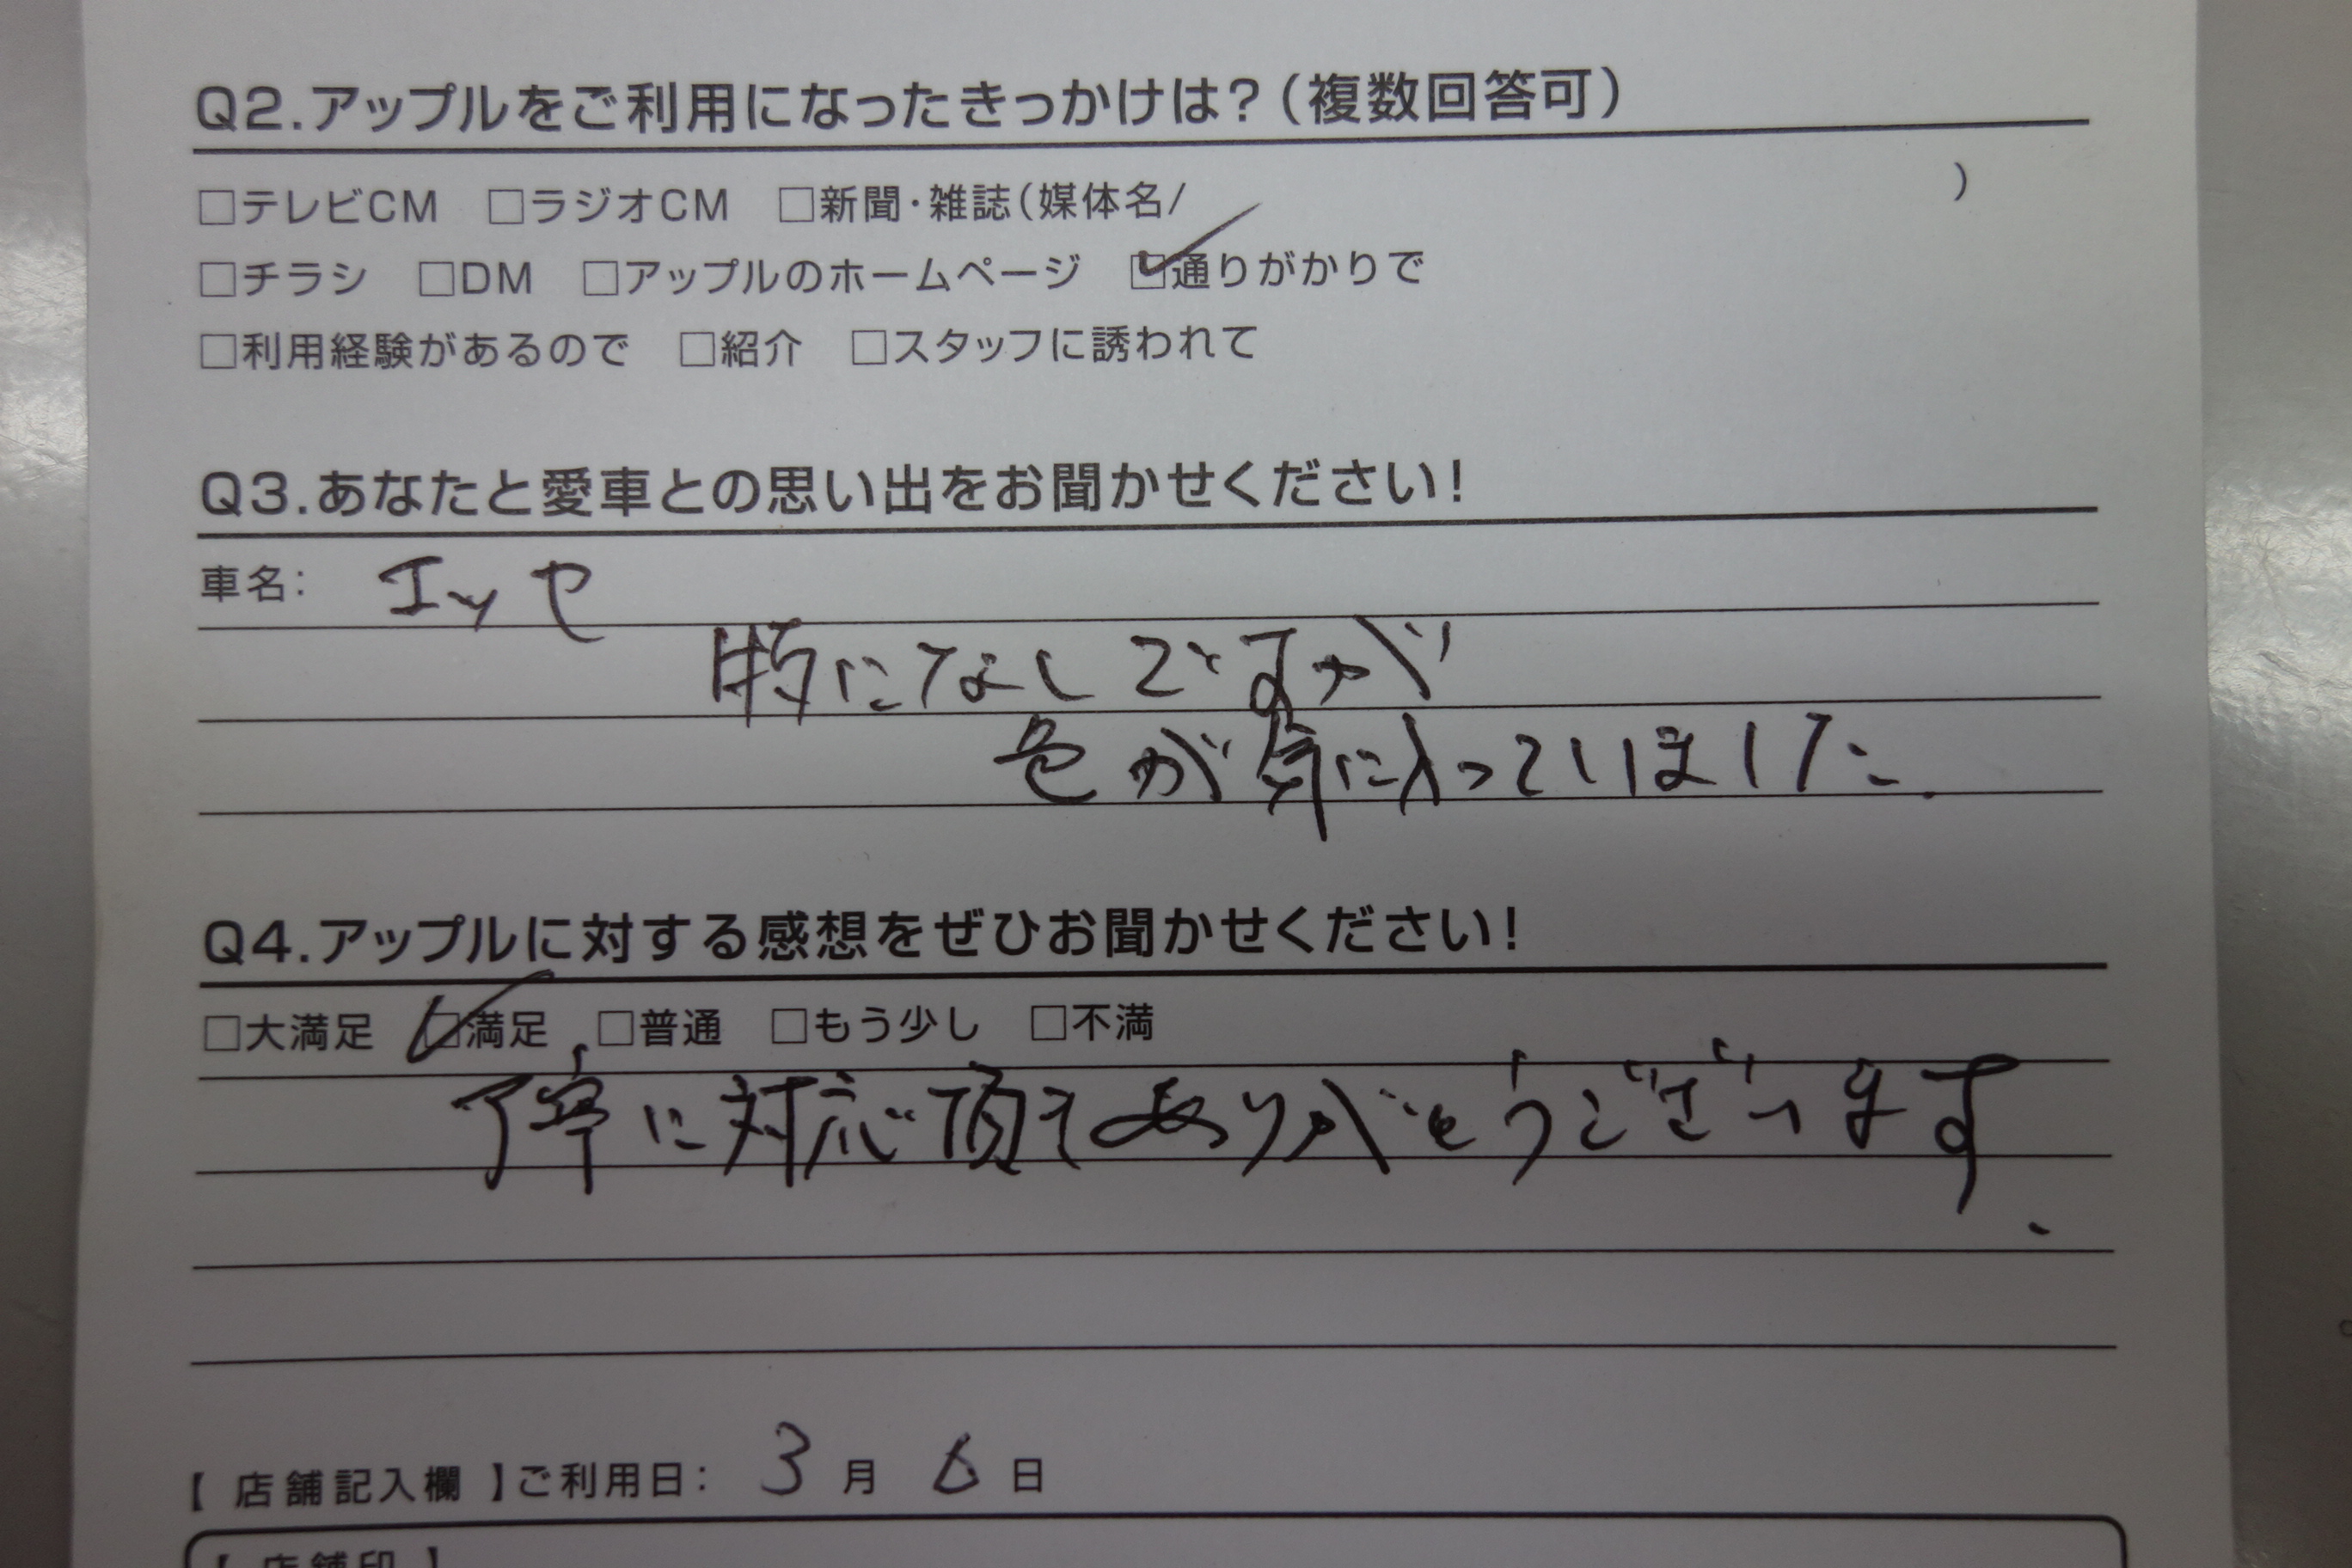 Q2.アップルをご利用になったきっかけは?(複数回答可)
□テレビCM □ラジオCM □新聞・雑誌(媒体名/ )
□チラシ □DM □アップルのホームページ ☑通りがかりで
□利用経験があるので □紹介 □スタッフに誘われて
Q3.あなたと愛車との思い出をお聞かせください!
車名: エッセ
特になしですが
色が気に入っていました.
Q4.アップルに対する感想をぜひお聞かせください!
□大満足 ☑満足 □普通 □もう少し □不満
丁寧に対応頂きありがとうございます、
【 店舗記入欄 】ご利用日: 3 月 6 日
【 店舗印 】